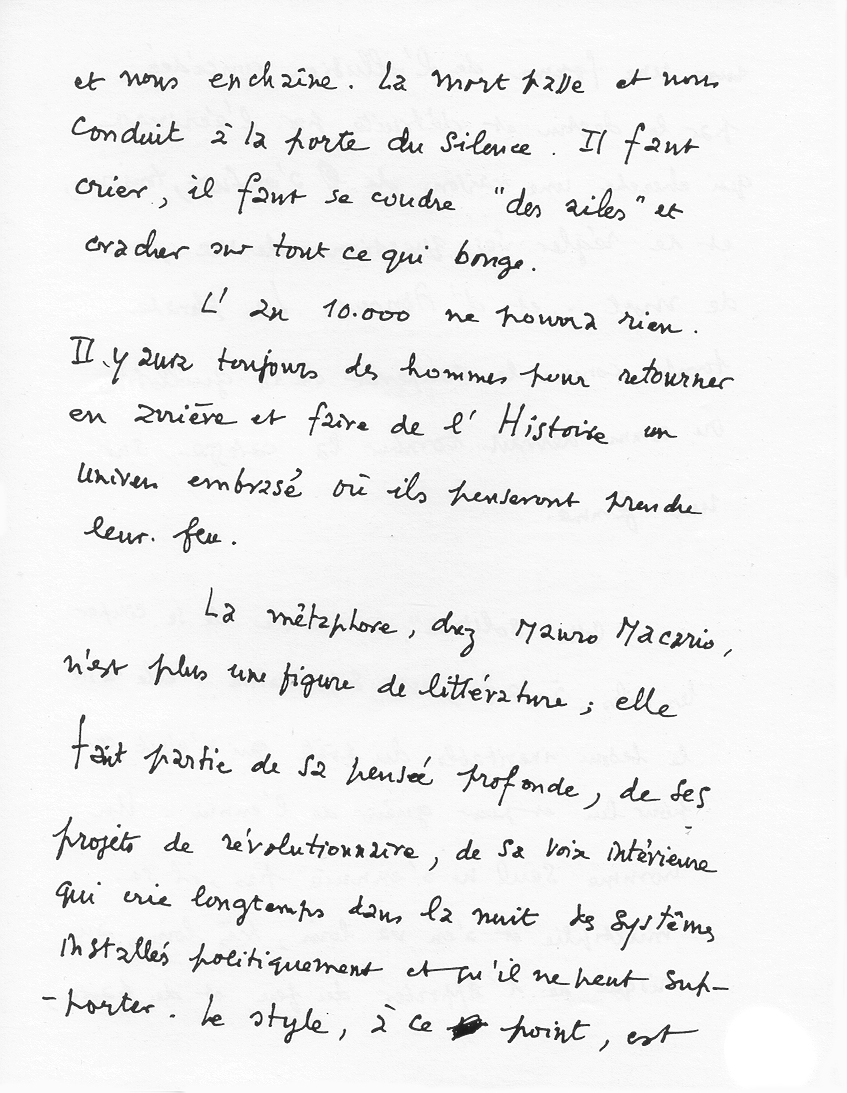 et nous enchaîne. La mort passe et nous
conduit à la porte du silence. Il faut
crier, il faut se coudre "des ailes" et
cracher sur tout ce qui bouge.
L'an 10.000 ne pourra rien.
Il y aura toujours des hommes pour retourner
en arrière et faire de l'Histoire un
univers embrasé où ils penseront prendre
leur feu.
La métaphore, chez Mauro Macario,
n'est plus une figure de littérature ; elle
fait partie de sa pensée profonde, de ses
projets de révolutionnaire, de sa voix intérieure
qui crie longtemps dans la nuit des systèmes
installés politiquement et qu'il ne peut sup-
-porter. Le style, à ce point, est